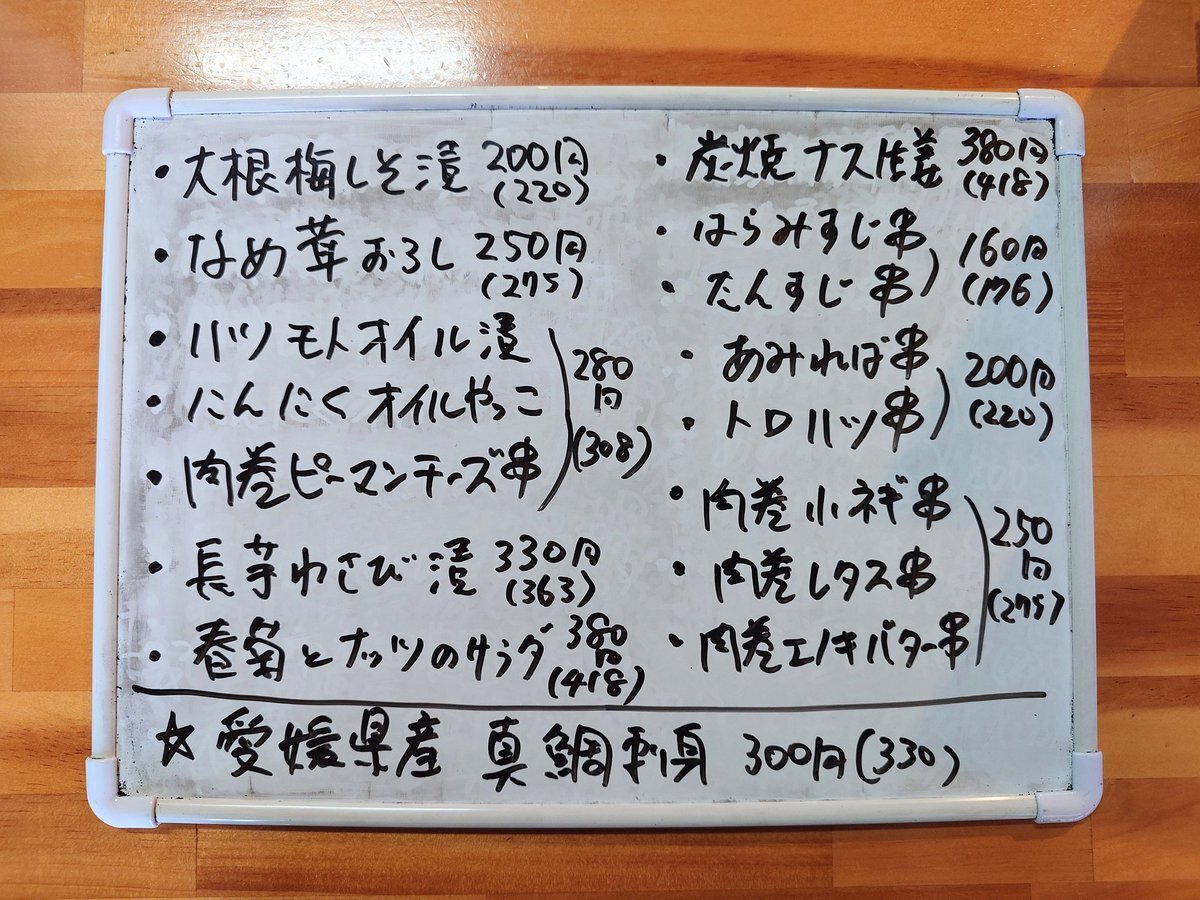 ・大根梅しそ漬 200円
(220)
・なめ茸おろし 250円
(275)
・ハツモトオイル漬
・にんにくオイルやっこ
・肉巻ピーマンチーズ串
280
円
(308)
・長芋わさび漬 330円
(363)
・春菊とナッツのサラダ 380
円
(418)
・炭焼ナス生姜 380円
(418)
・はらみすじ串
・たんすじ串
160円
(176)
・あみればー串
・トロハツ串
200円
(220)
・肉巻小ネギ串
・肉巻レタス串
・肉巻エノキバター串
250
円
(275)
☆愛媛県産 真鯛刺身 300円(330)